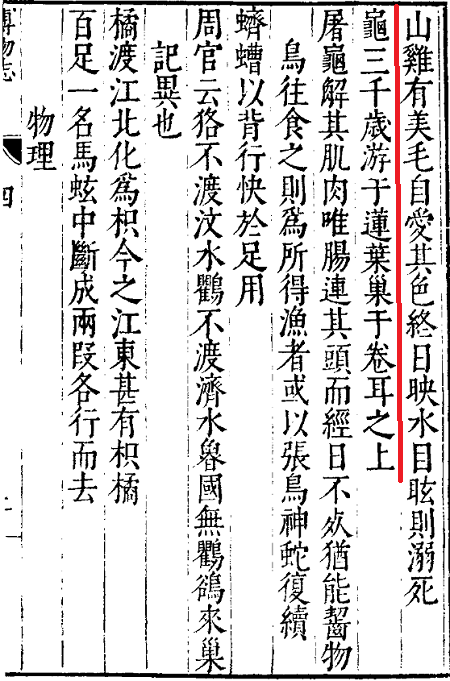 山雞有美毛自愛其色終日映水目眩則溺死
龜三千歲游于蓮葉巢于卷耳之上
屠龜解其肌肉唯腸連其頭而經日不㱙猶能齧物
鳥往食之則爲所得漁者或以張鳥神蛇復續
蠐螬以背行快於足用
周官云狢不渡汶水鸜不渡濟水魯國無鸜鵒來巢
記異也
橘渡江北化爲枳今之江東甚有枳橘
百足一名馬蚿中斷成兩段各行而去
物理
博物志
四